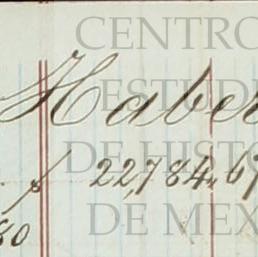 CENTRO
Haber
ESTUDI
DE HISTO
$ 22,784.,67
DE MEX
80